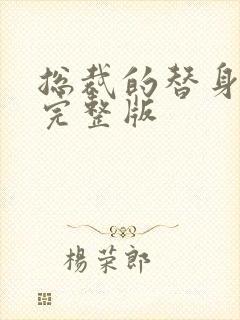 总裁的替身
完整版
杨荣郎